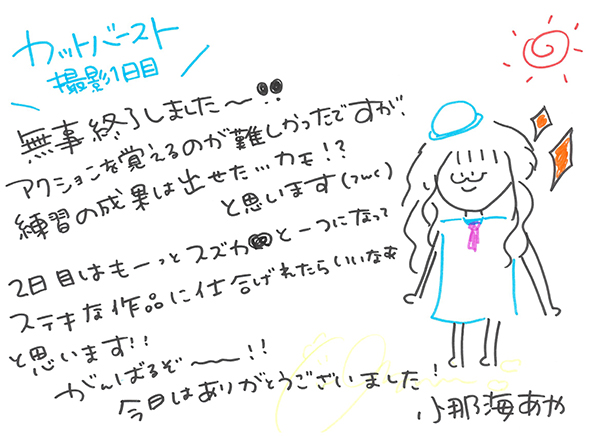 カットバースト
撮影1日目
無事終了しました〜!!
アクションを覚えるのが難しかったですが、
練習の成果は出せた…カモ!?
と思います(つωく)
2日目はもーっとスズカと一つになって
ステキな作品に仕上げれたらいいなあ
と思います!!
がんばるぞ〜!!
今日はありがとうございました!
小那海あや